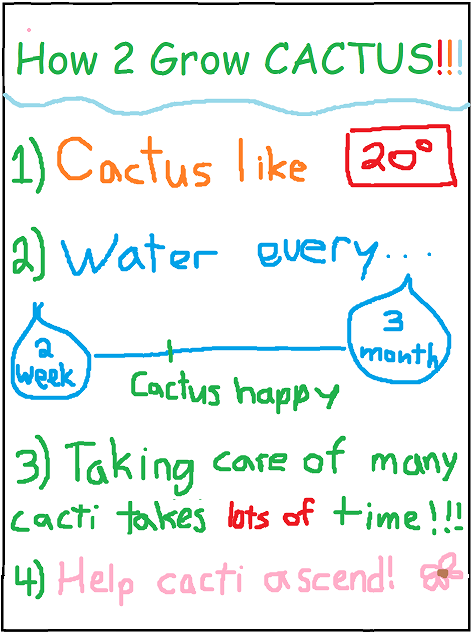 How 2 Grow CACTUS!!!
1) Cactus like 20°
2) Water every...
2 week
3 month
Cactus happy
3) Taking care of many
cacti takes lots of time!!!
4) Help cacti ascend!